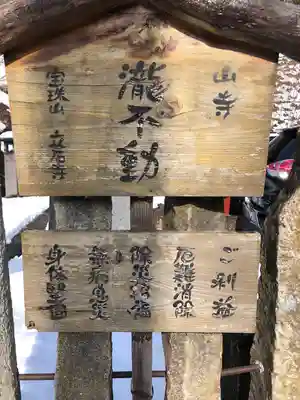 山寺
瀧不動
宝珠山 立石寺
ご利益
厄難消除
除災招福
無病息災
身体堅固